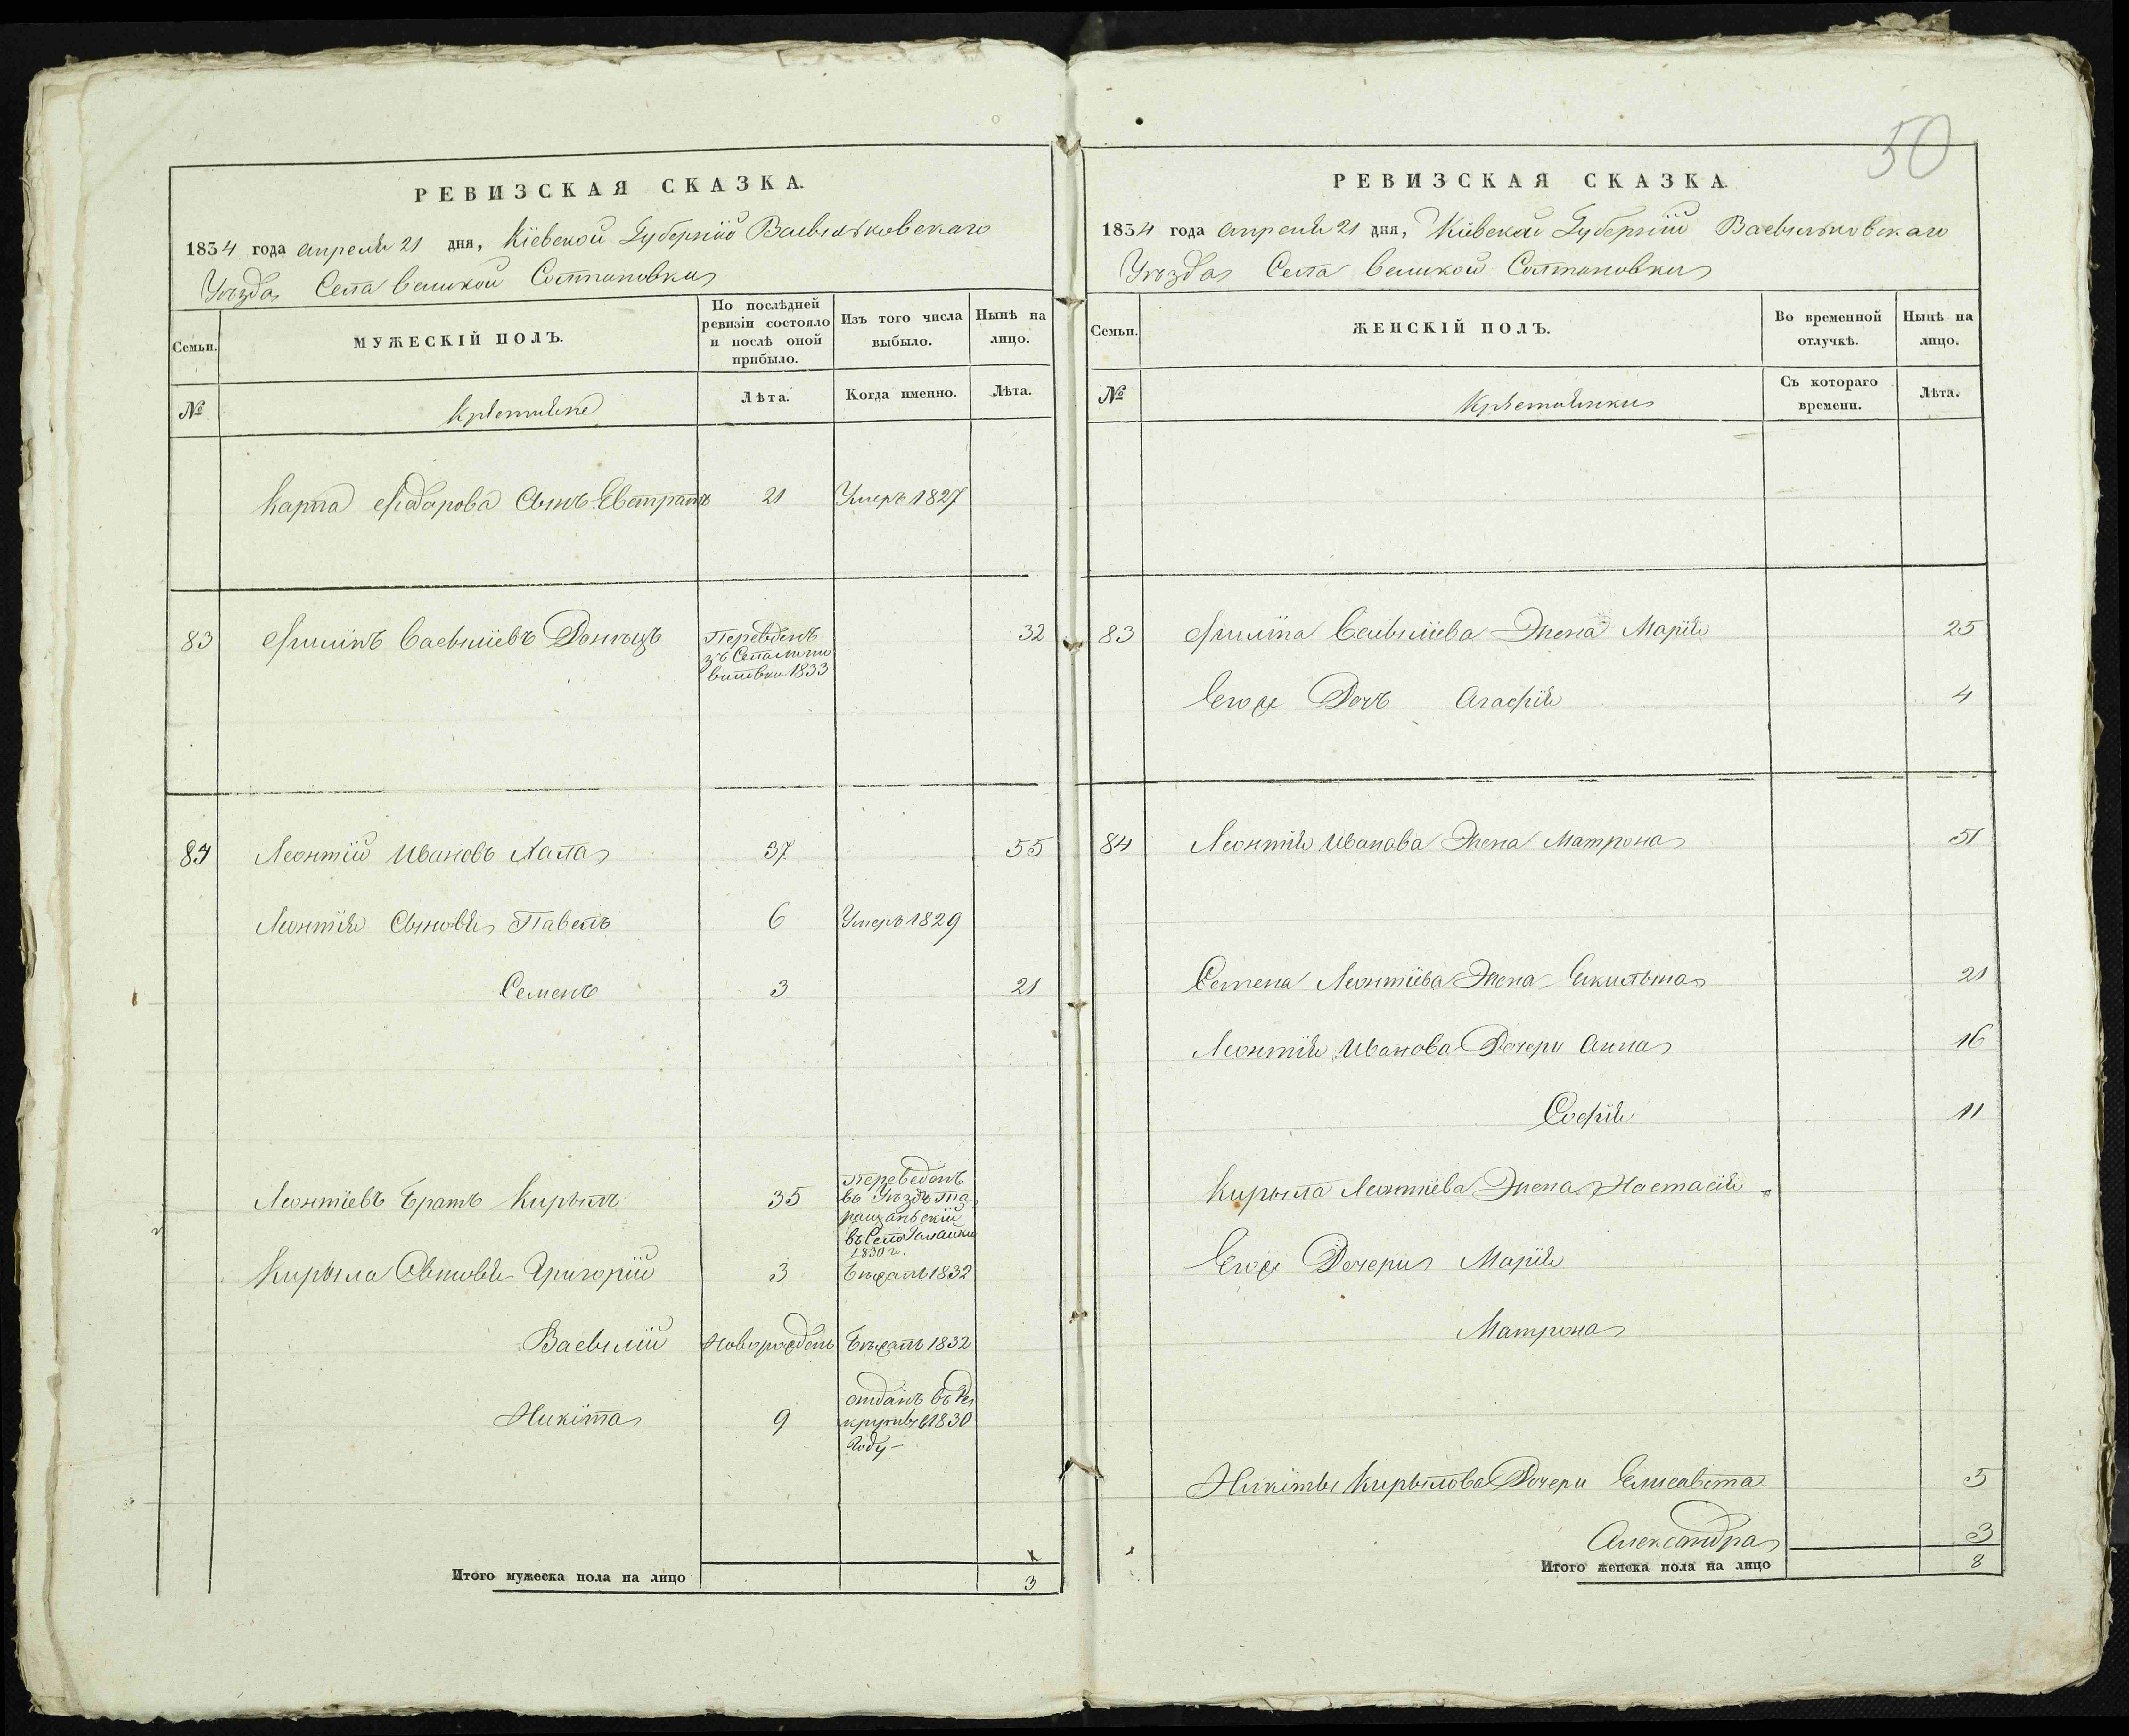 50
РЕВИЗСКАЯ СКАЗКА.
1834 года апреля 21 дня, Кіевской Губерніи Васильковскаго
Уѣзда Села Великой Солтановки
Семьи.
МУЖЕСКІЙ ПОЛЪ.
По послѣдней ревизіи состояло и послѣ оной прибыло.
Изъ того числа выбыло.
Нынѣ на лицо.
№
Крестьяне
Лѣта.
Когда именно.
Лѣта.
Карпа Федорова Сынъ Евстратъ 21 Умеръ 1827
83 Филипъ Васильевъ Донецъ
Переведенъ
зъ Села
1833
32
84 Леонтій Ивановъ Халпа 37 55
Леонтія Сыновья Павелъ 6 Умеръ 1829
Семенъ 3 21
Леонтіевъ Братъ Кирылъ 35
Переведенъ
въ Уѣздъ Та
ращанскій
въ Село
1830 г.
Кирыла Сыновья Григорій 3 Бѣжалъ 1832
Василій Новорожденъ Бѣжалъ 1832
Никита 9
отданъ въ Ре
круты 1830
Году
Итого мужеска пола на лицо 3
РЕВИЗСКАЯ СКАЗКА.
1834 года апреля 21 дня, Кіевской Губерніи Васильковскаго
Уѣзда Села Великой Солтановки
Семьи.
ЖЕНСКІЙ ПОЛЪ.
Во временной отлучкѣ.
Нынѣ на лицо.
№
Крестьянки
Съ котораго времени.
Лѣта.
83 Филипа Васильева Жена Марія 25
Егоже Дочь Агафія 4
84 Леонтія Иванова Жена Матрона 51
Семена Леонтіева Жена Акилына 21
Леонтія Иванова Дочери Анна 16
Софія 11
Кирыла Леонтіева Жена Настасія
Егоже Дочери Марія
Матрона
Никиты Кирылова Дочери Елисавета 5
Александра 3
Итого женска пола на лицо 8